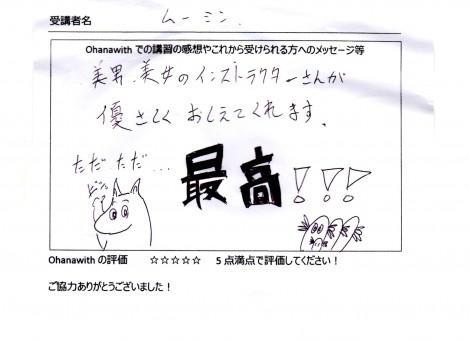 受講者名 ムーミン
Ohanawith での講習の感想やこれから受けられる方へのメッセージ等
美男、美女のインストラクターさんが
優さしく おしえてくれます。
ただ、ただ… 最高!!!
Ohanawith の評価 ☆☆☆☆☆ 5 点満点で評価してください!
ご協力ありがとうございました!